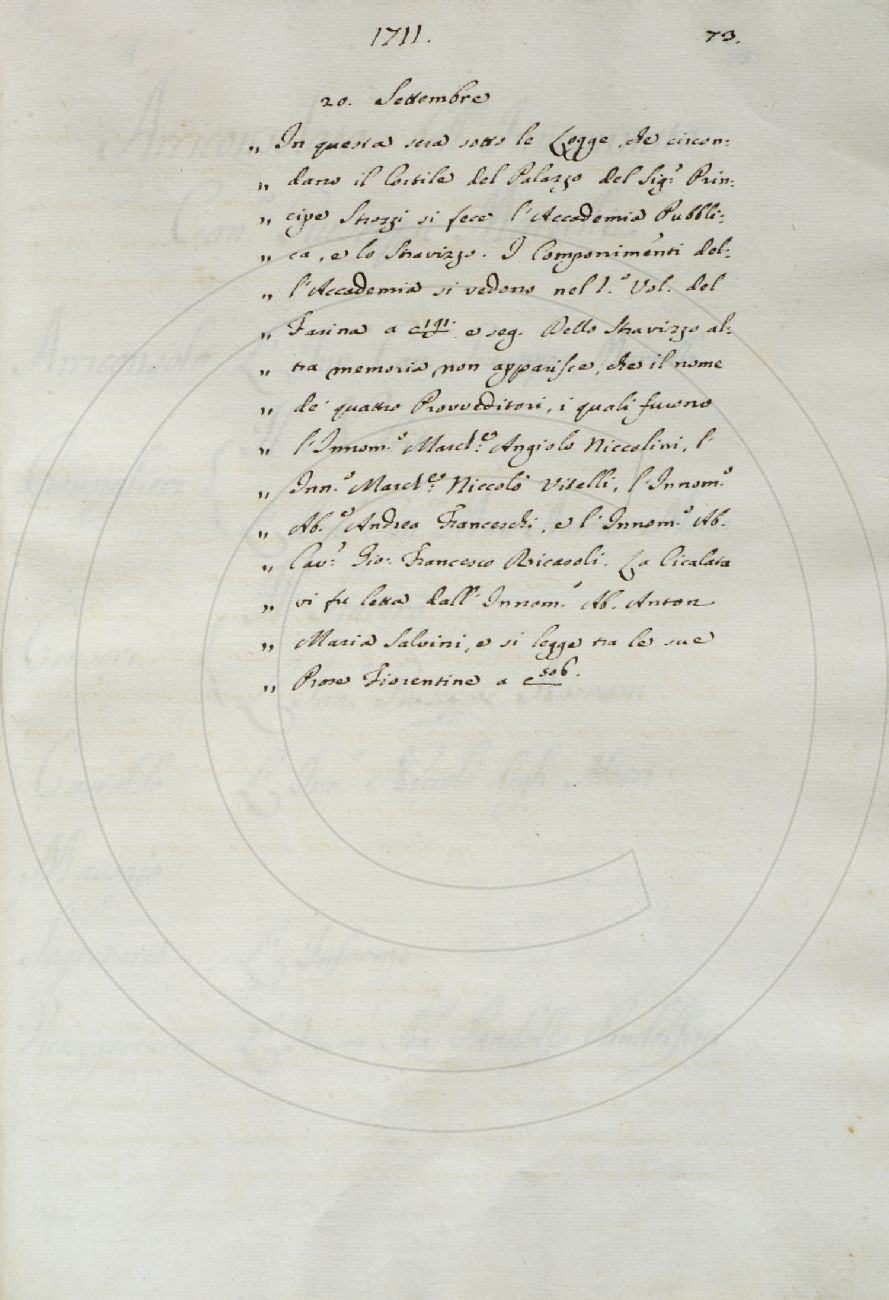 1711. 73.
20. Settembre
„ In questa sera sotto le Logge, che circon:
„ dano il Cortile del Palazzo del Sig.r Prin:
„ cipe Strozzi si fece l'Accademia Pubbli:
„ ca, e lo Stravizzo. I Componimenti del:
„ l'Accademia si vedono nel 1.o Vol. del
„ Farina a c e seg. Dello Stravizzo al:
„ tra memoria non apparisce, che il nome
„ de' quattro Provveditori, i quali furono
„ l'Innom.o March.e Angiolo Niccolini, l'
„ Inn.o March.e Niccolò Vitelli, l'Innom.o
„ Ab.e Andrea Franceschi, e l'Innom.o Ab.
„ Cav.r Gio: Francesco Ricasoli. La Cicalata
„ vi fu letta dall'Innom.o Ab. Anton
„ Maria Salvini, e si legge tra le sue
„ Prose Fiorentine a c 506.